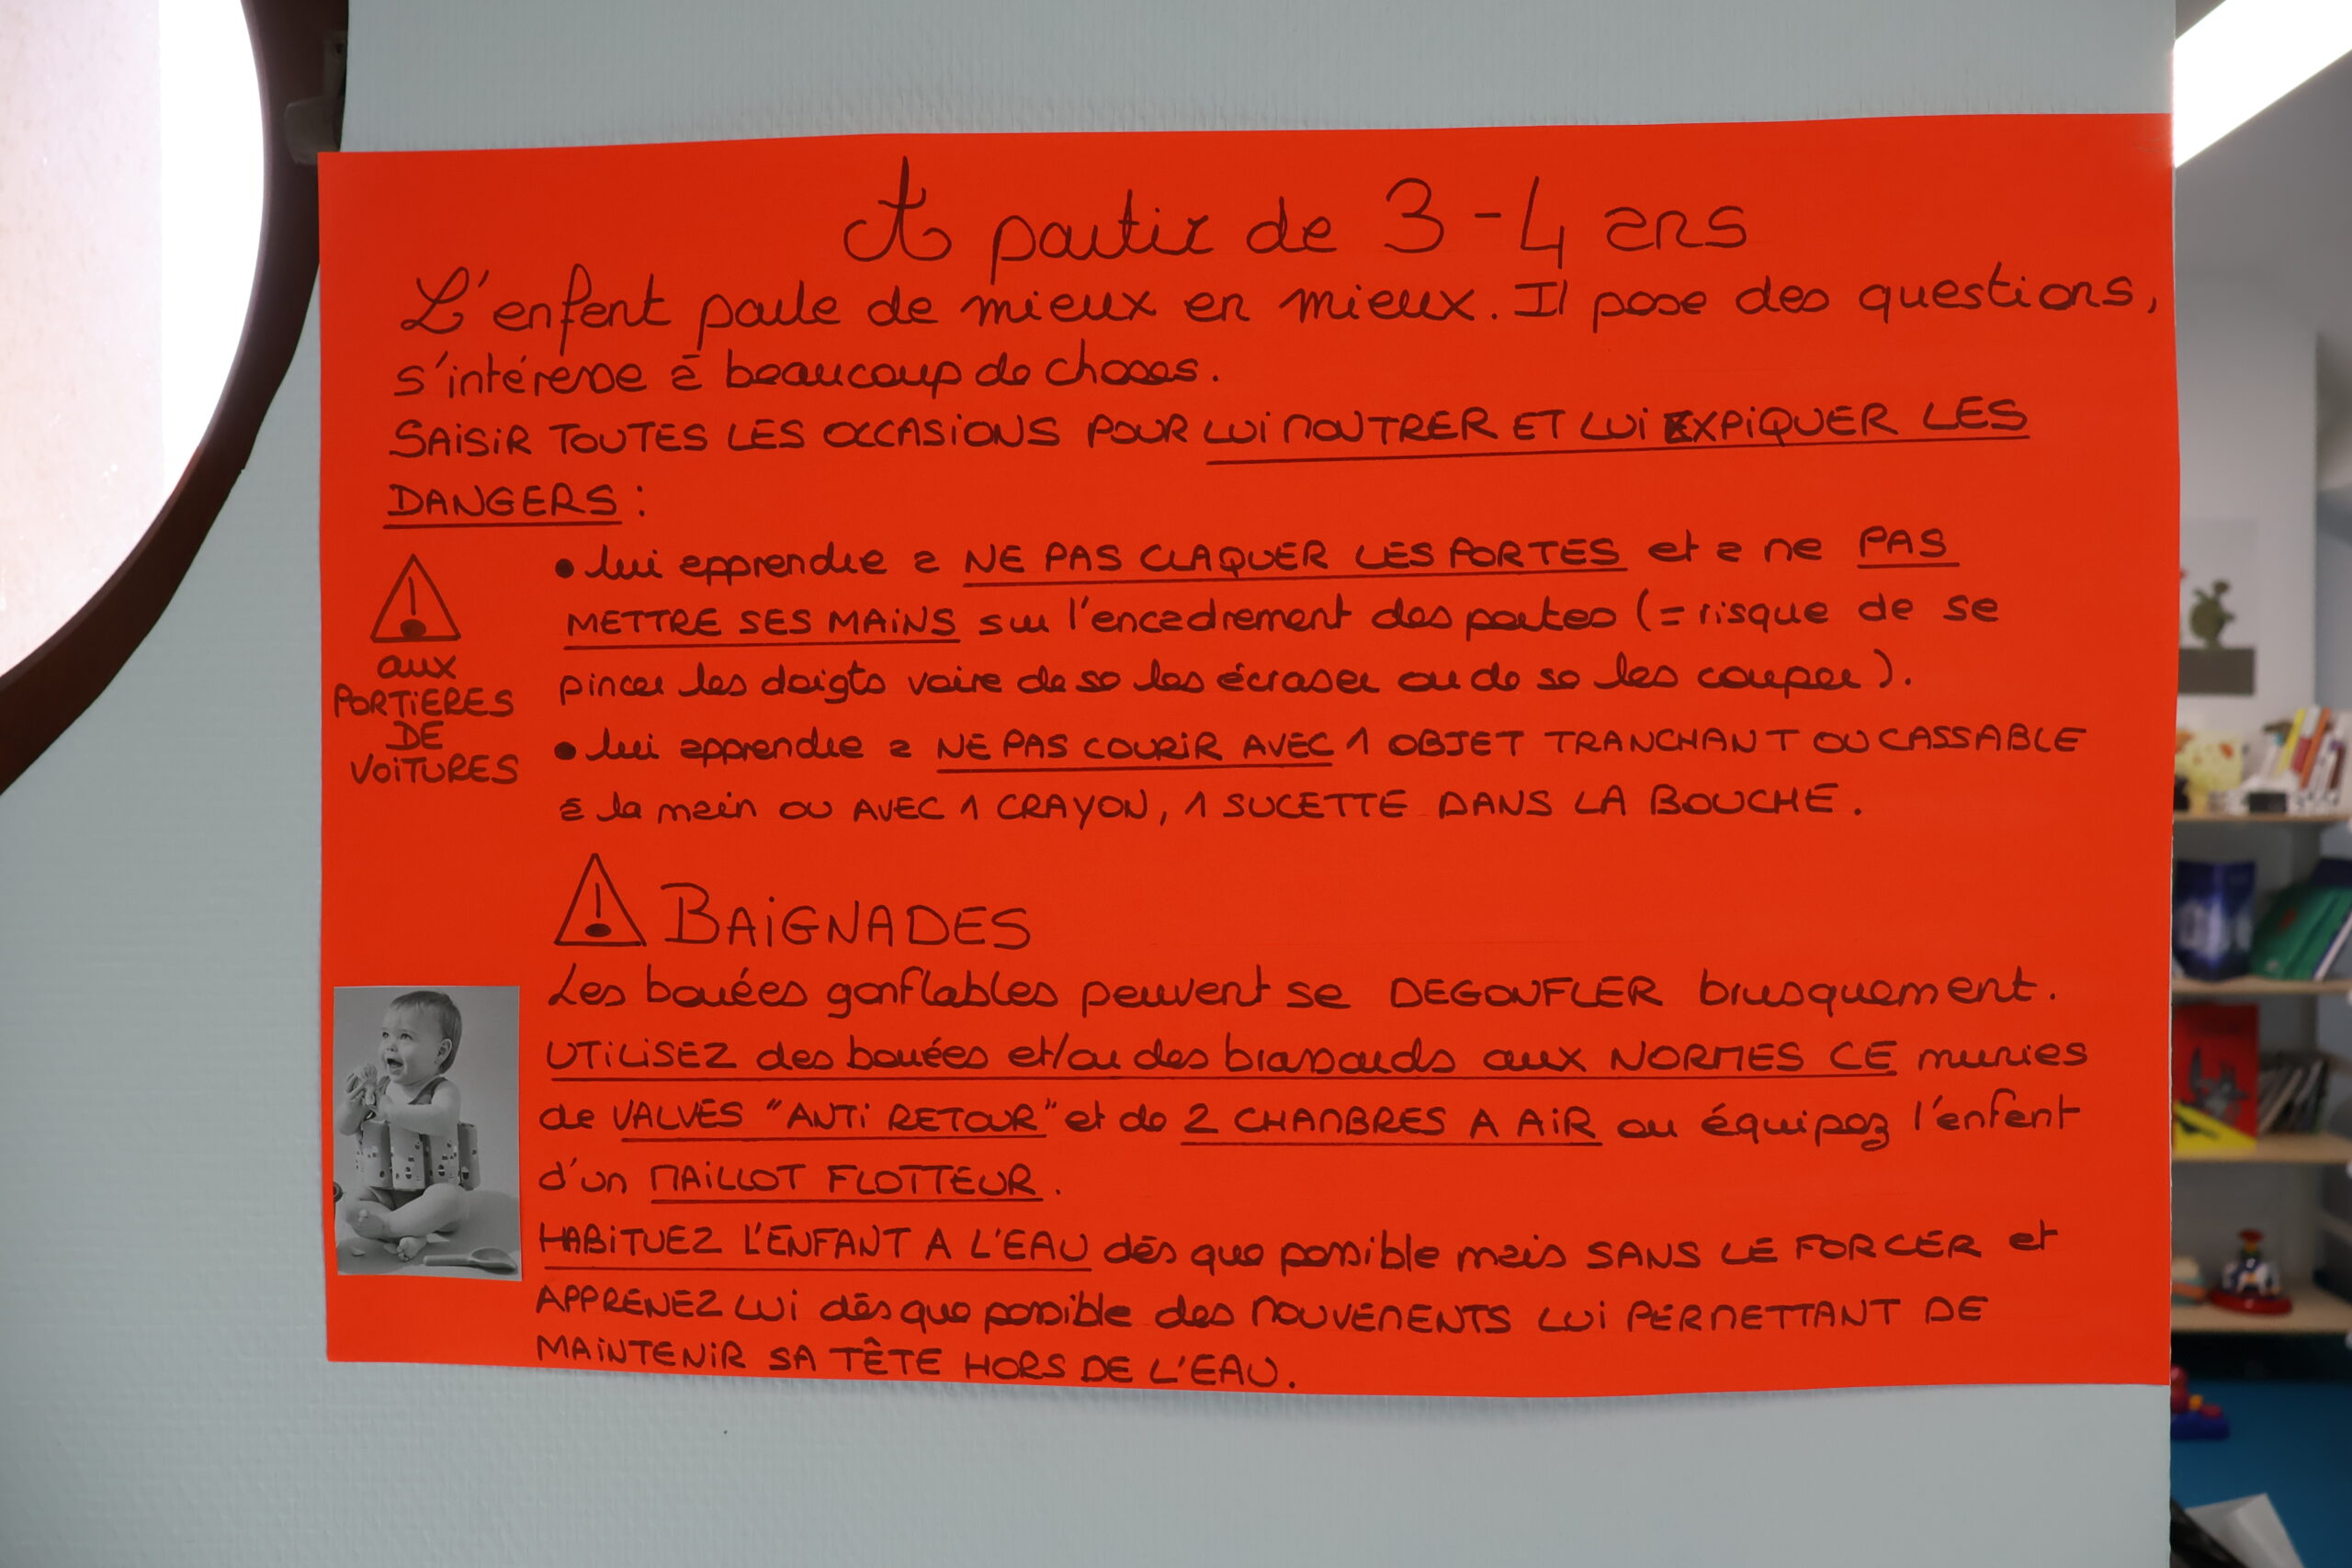 A partir de 3-4 ans
L'enfant parle de mieux en mieux. Il pose des questions,
s'intéresse à beaucoup de choses.
SAISIR TOUTES LES OCCASIONS POUR LUI MONTRER ET LUI EXPIQUER LES
DANGERS :
• lui apprendre a NE PAS CLAQUER LES PORTES et a ne PAS
METTRE SES MAINS sur l'encadrement des portes (= risque de se
pincer les doigts voire de se les écraser ou de se les couper).
! aux
PORTIERES
DE
VOITURES
• lui apprendre a NE PAS COURIR AVEC 1 OBJET TRANCHANT OU CASSABLE
à la main ou AVEC 1 CRAYON, 1 SUCETTE DANS LA BOUCHE.
! BAIGNADES
Les bouées gonflables peuvent se DEGONFLER brusquement.
UTILISEZ des bouées et/ou des brassards aux NORMES CE munies
de VALVES "ANTI RETOUR" et de 2 CHAMBRES A AIR ou équipez l'enfant
d'un MAILLOT FLOTTEUR.
HABITUEZ L'ENFANT A L'EAU dès que possible mais SANS LE FORCER et
APPRENEZ LUI dès que possible des MOUVEMENTS LUI PERMETTANT DE
MAINTENIR SA TÊTE HORS DE L'EAU.